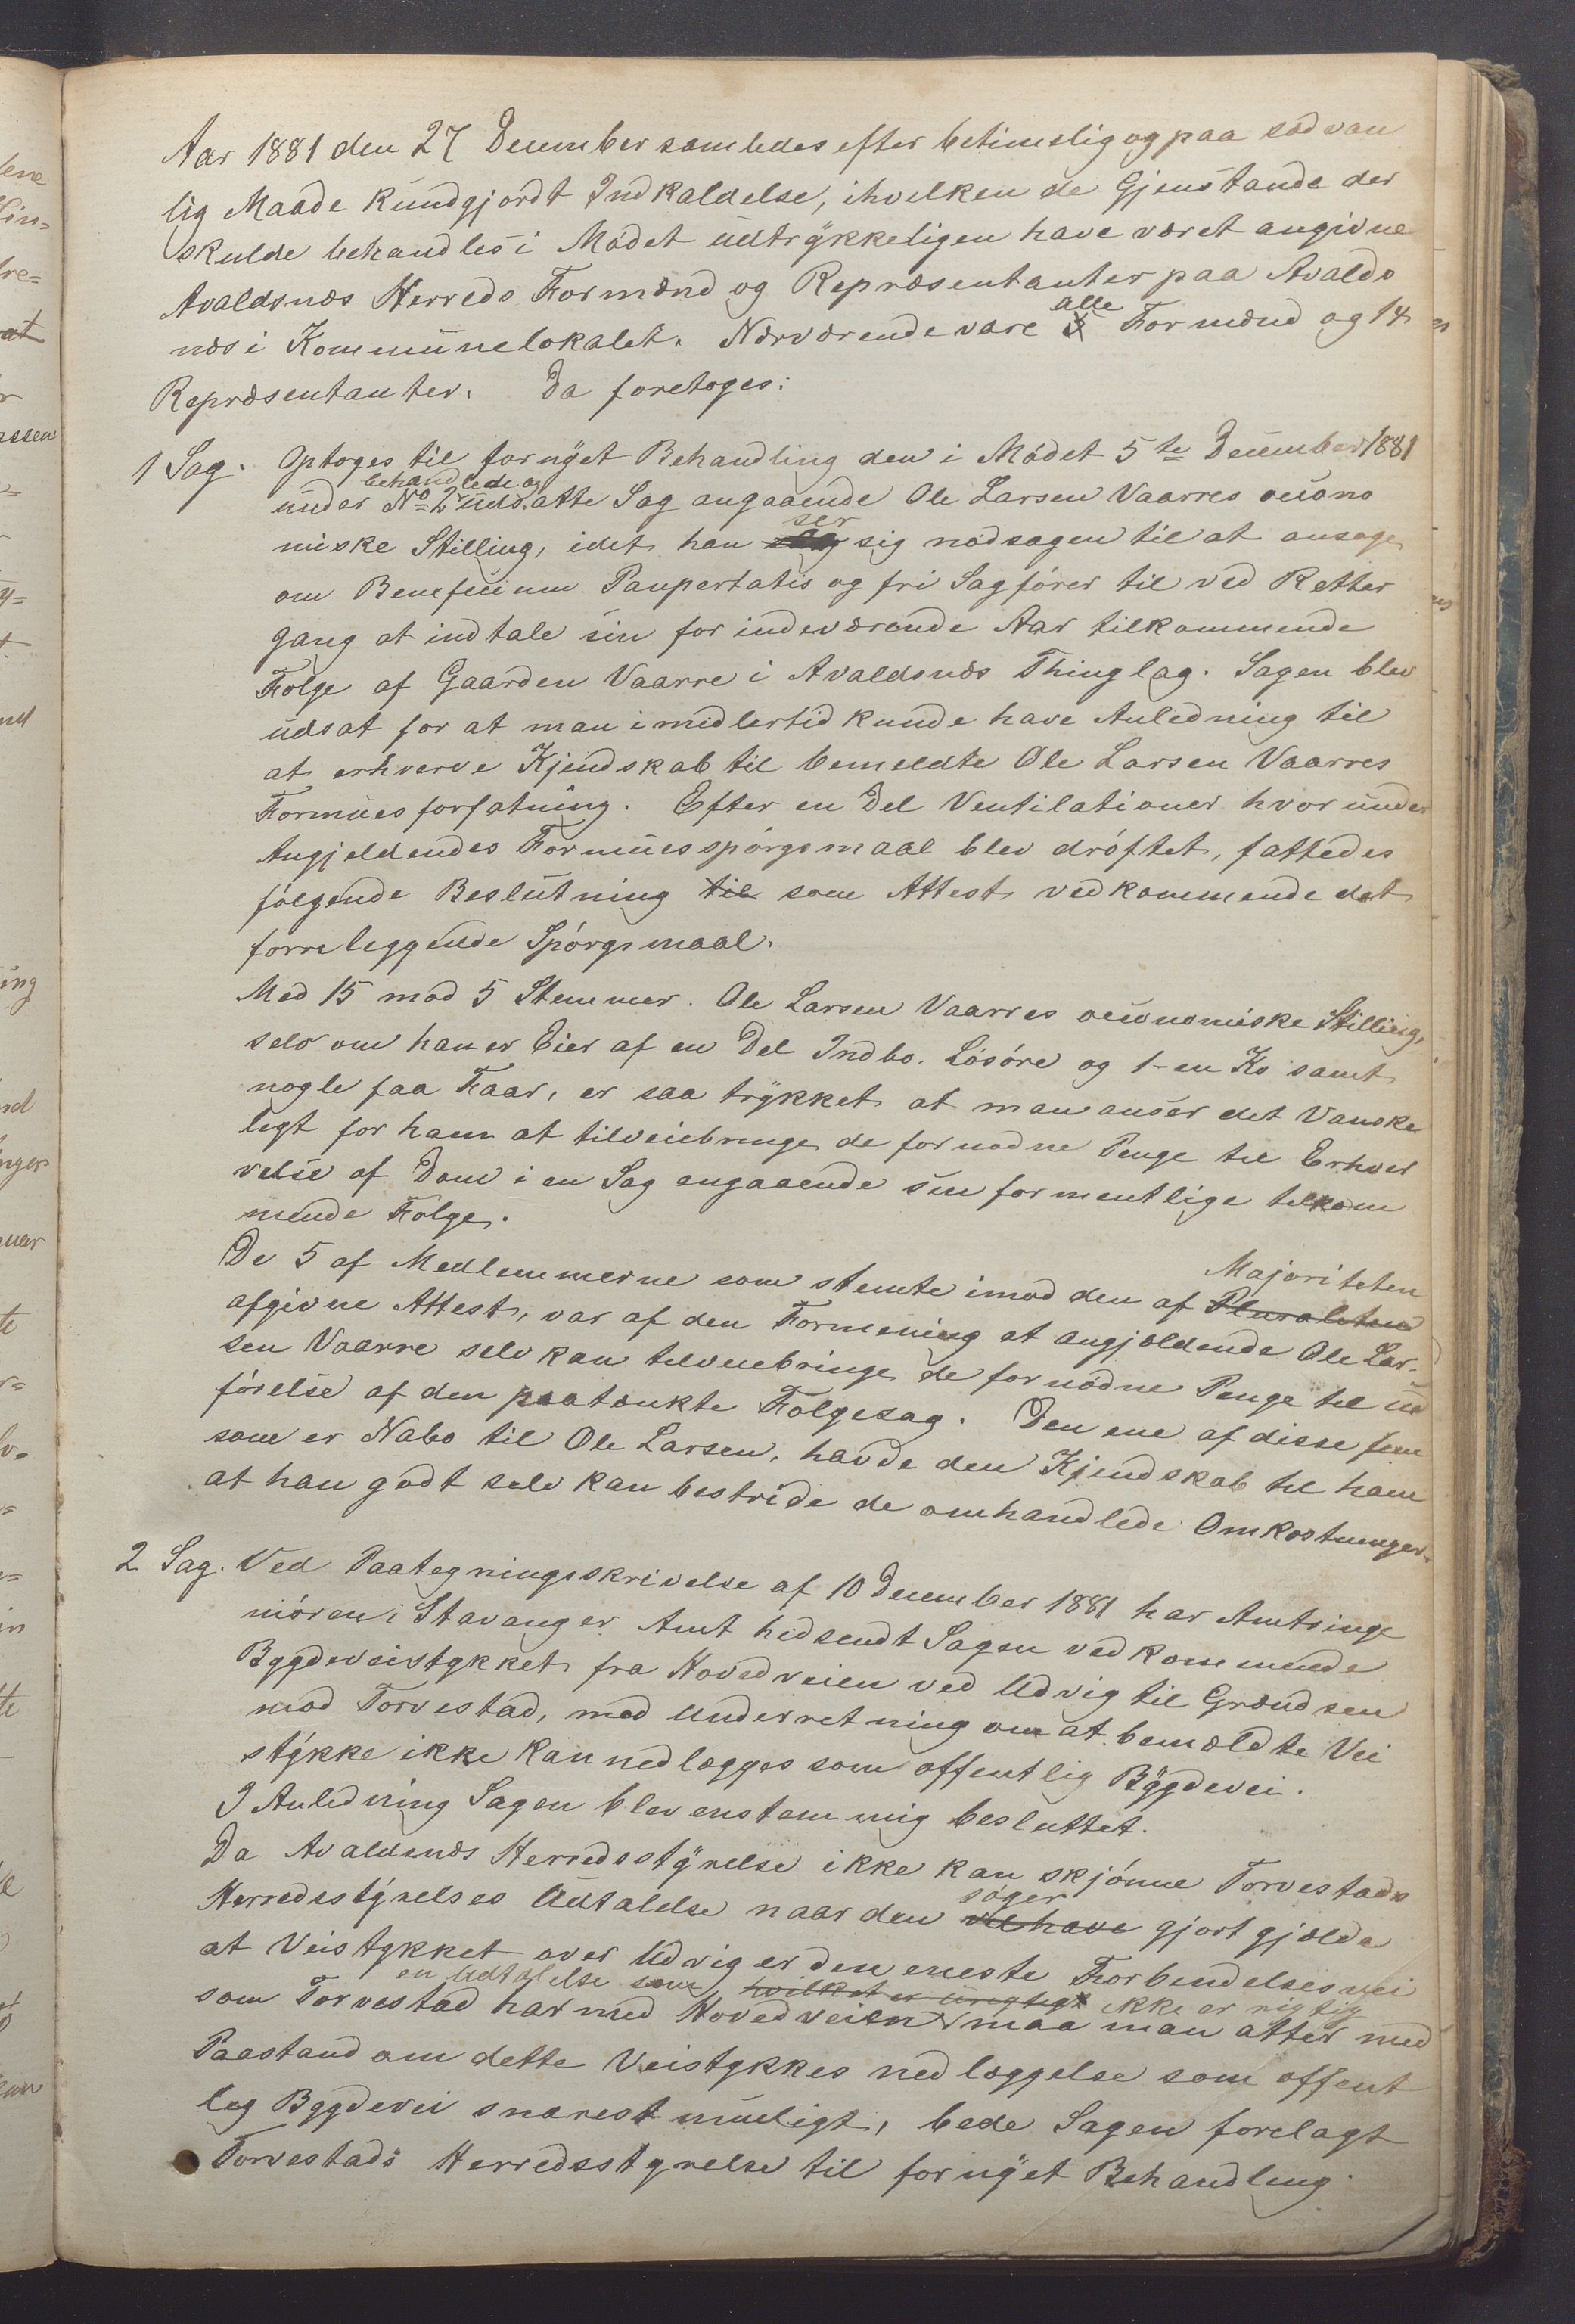 Aar 1881 den 27 December samledes efter betimelig og paa sædvan
lig Maade kundgjordt Indkaldelse, ihvilken de Gjenstande der
skulde behandles i Mødet udtrykkeligen have været angivne
Avaldsnæs Herreds Formænd og Repræsentanter paa Avalds
næs i Kommunelokalet. Nærværende vare alle Formænd og 14
Repræsentanter. Da foretoges:
1 Sag. Optoges til fornyet Behandling den i Mødet 5te December 1881
under No 2 behandlede og udsatte Sag angaaende Ole Larsen Vaarres oecono
miske Stilling, idet han ser sig nødsagen til at ansøge
om Beneficium Paupertatis og fri Sagfører til ved Retter
gang at indtale sin for indeværende Aar tilkommende
Følge af Gaarden Vaarre i Avaldsnæs Thinglag. Sagen blev
udsat for at man imidlertid kunde have Anledning til
at erhverve Kjendskab til bemeldte Ole Larsen Vaarres
Formuesforfatning. Efter en Del Ventilationer hvorunder
Angjeldendes Formuesspørgsmaal blev drøftet, fattedes
følgende Beslutning til som Attest vedkommende det
forreliggende Spørgsmaal.
Med 15 mod 5 Stemmer. Ole Larsen Vaarres oeconomiske Stilling,
selv om han er Eier af en Del Indbo. Løsøre og 1-en Ko samt
nogle faa Faar, er saa trykket at man anser det Vanske
ligt for ham at tilveiebringe de fornødne Penge til Erhver
velse af Dom i en Sag angaaende sin formentlige tilkom
mende Følge.
De 5 af Medlemmerne som stemte imod den af Pluraliteten Majoriteten
afgivne Attest, var af den Formening at angjældende Ole Lar-
sen Vaarre selv kan tilveiebringe de fornødne Penge til ud
førelse af den paatænkte Følgesag. Den ene af disse fem
som er Nabo til Ole Larsen, havde den Kjendskab til ham
at han godt selv kan bestride de omhandlede Omkostninger.
2 Sag. Ved Paategningsskrivelse af 10 December 1881 har Amtsinge
niøren i Stavanger Amt hidsendt Sagen vedkommende
Bygdeveistykket fra Hovedveien ved Udvig til Grændsen
mod Torvestad, med Underretning om at bemældte Vei
stykke ikke kan nedlægges som offentlig Bygdevei.
I Anledning Sagen blev enstemmig besluttet.
Da Avaldsnæs Herredsstyrelse ikke kan skjønne Torvestads
Herredsstyrelses Udtalelse naar den vil have søger gjort gjælde
at Veistykket over Udvig er den eneste Forbendelsesvei
som Torvestad har med Hovedveien hvilket er urigtigt en Udtalelse som ikke er rigtig maa man atter med
Paastand om dette Veistykkes nedlæggelse som offent
lig Bygdevei snarest muligt, bede Sagen forelagt
Torvestads Herredsstyrelse til fornyet Behandling.